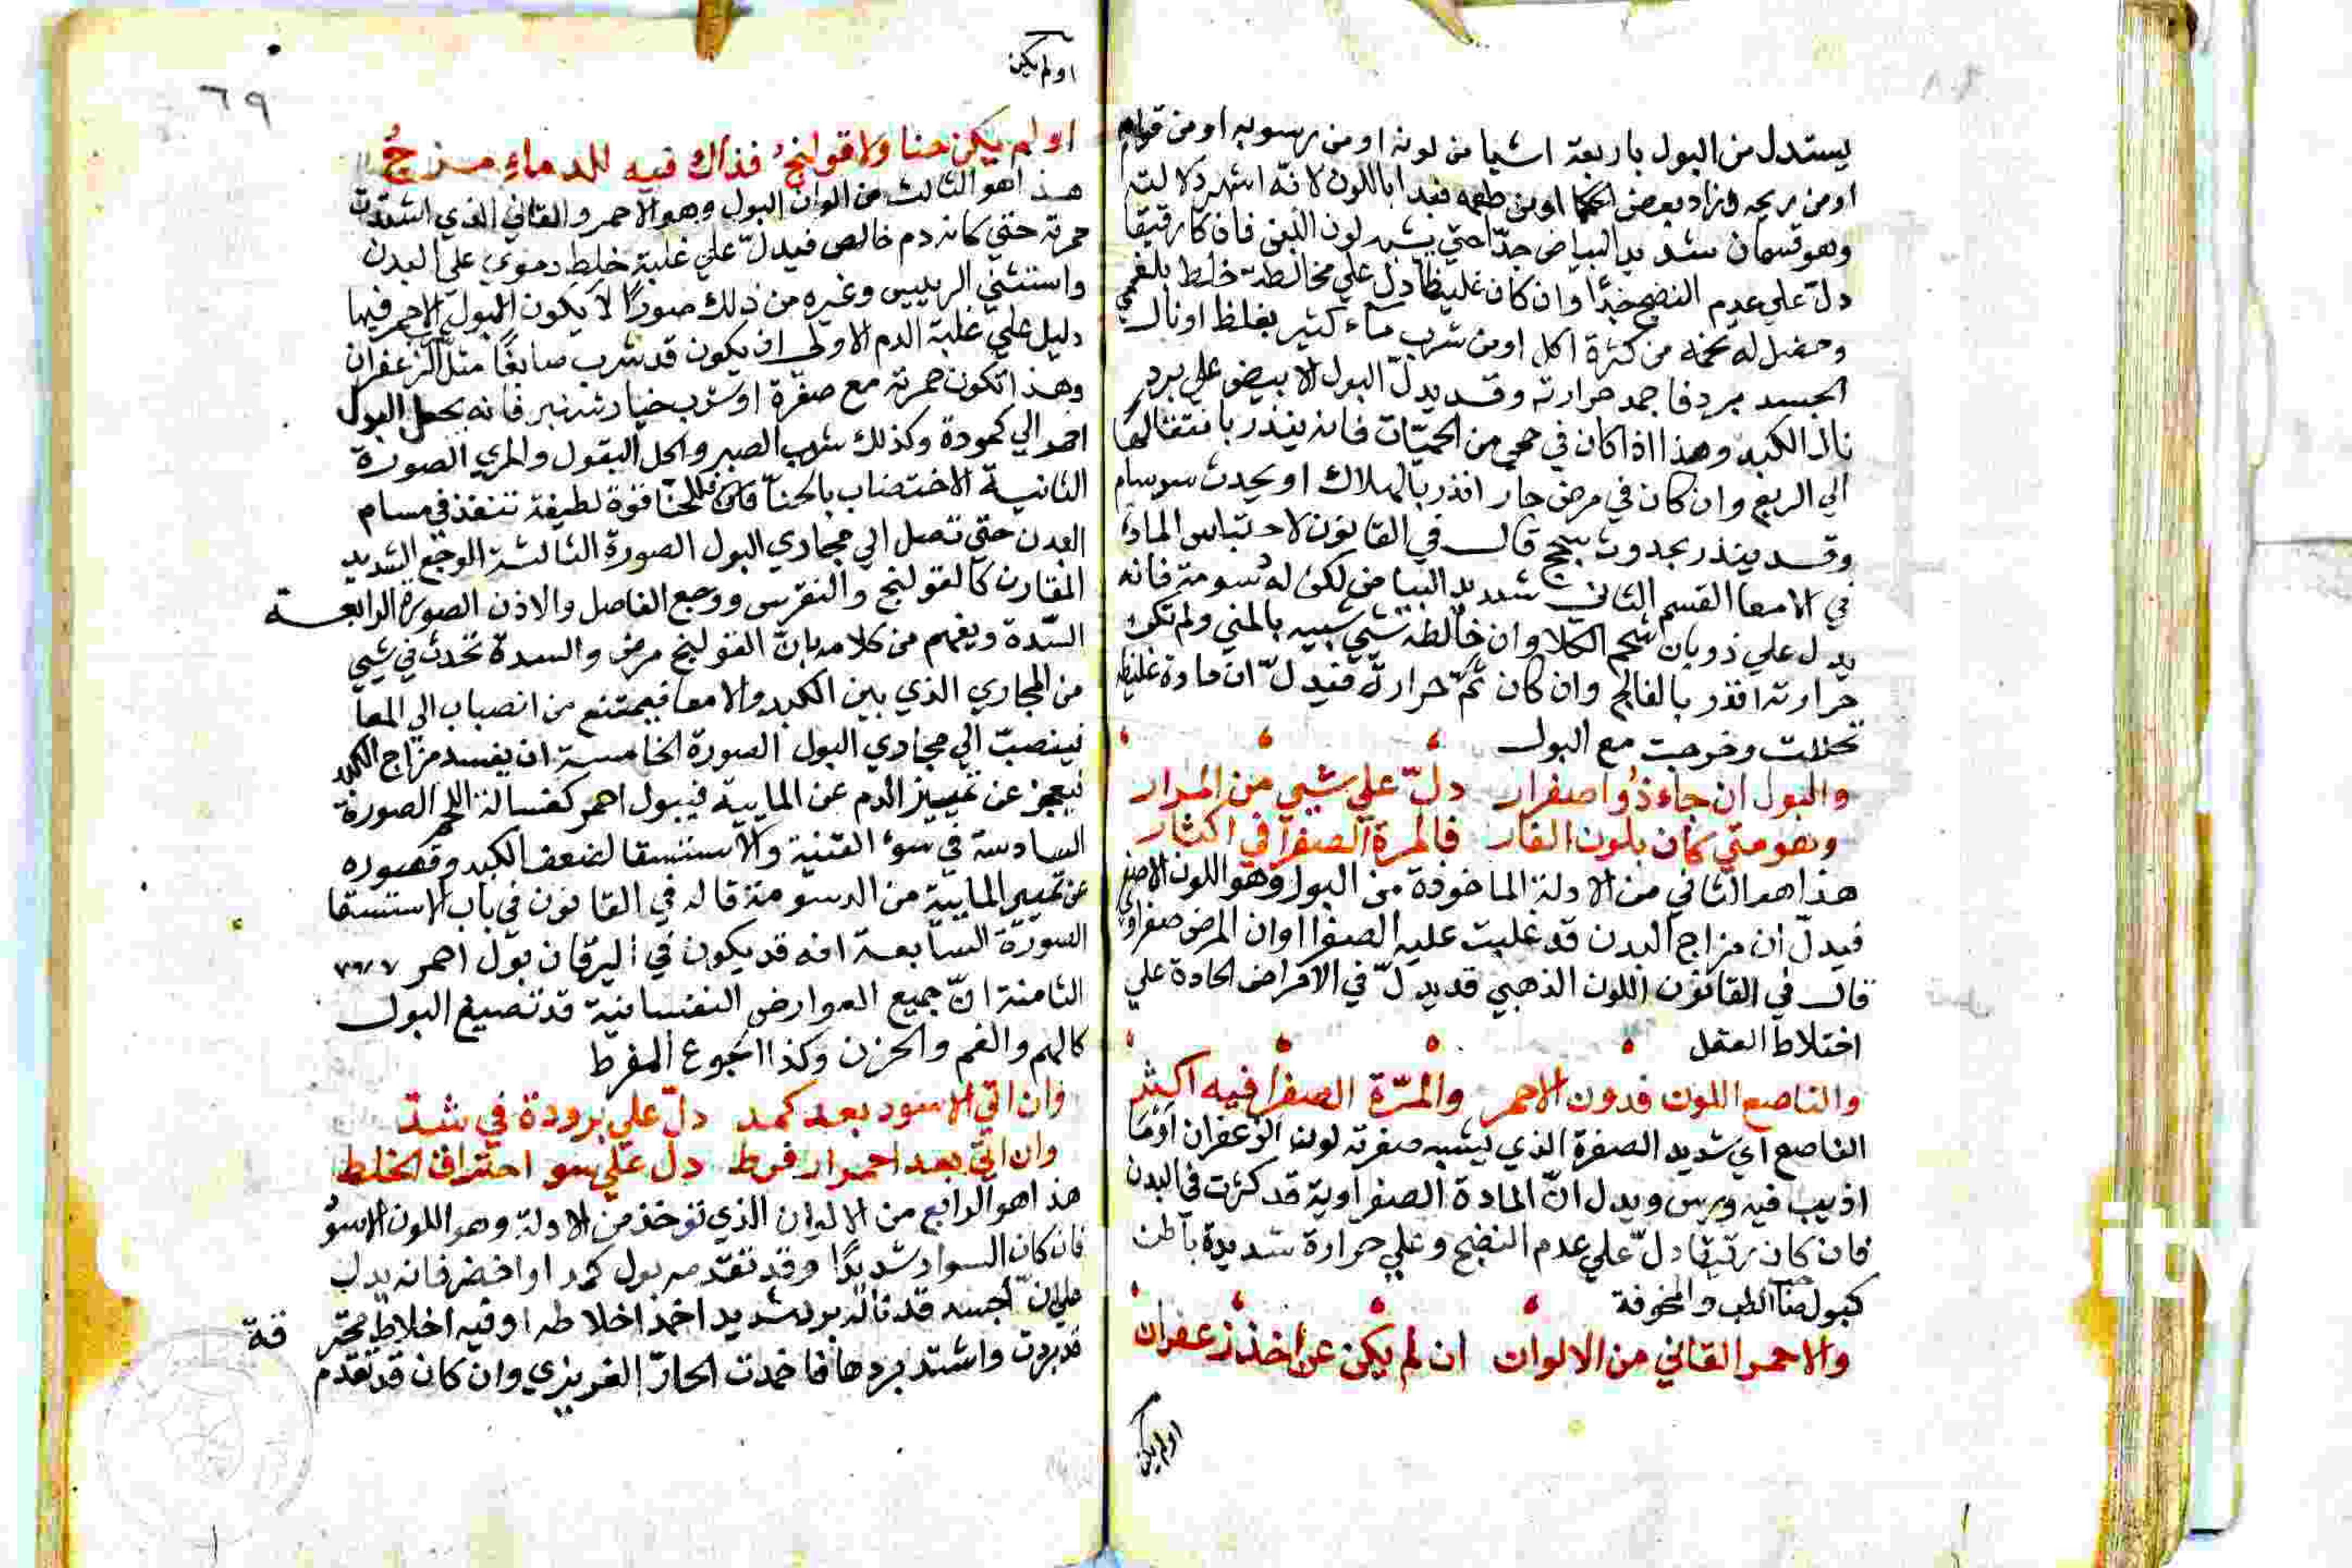 يستدل من البول باربعة اشيا من لونه او من رسوبه او من قوامه
او من ريحه وزاد بعض الحكما او من طعمه فبدا باللون لانه اشهر دلالته
وهو قسمان شديد البياض جدّا حتي يشبه لون اللبن فان كان رقيقا
دلّ علي عدم النضج جدّا وان كان غليظا دلّ علي مخالطة خلط بلغمي
وحصل له تخمه من كثرة اكل او من شرب ماء كثير بغلظ او نال
الجسد برد فاجمد حرارته وقد يدلّ البول الابيض علي برد
نال الكبد وهذا اذا كان في حمي من الحميّات فانه ينذر بانتقالها
الي الربع وان كان في مرض حار انذر بالهلاك او يحدث سرسام
وقد ينذر بحدوث سحج قال في القانون لاحتباس المادة
في الامعا القسم الثاني شديد البياض لكن له دسومة فانه
يدل علي ذوبان شحم الكلا وان خالطه شي شبيه بالمني ولم تكن
حرارته انذر بالفالج وان كان ثمّ حرارة فيدلّ ان مادة غليظة
تحللت وخرجت مع البول
والبول ان جاء ذو اصفرار دلّ علي شي من المرار
وهو متي كان بلون النار فالمرة الصفرا في اكثار
هذا هو الثاني من الادلة الماخوذة من البول وهو اللون الاصفر
فيدلّ ان مزاج البدن قد غلبت عليه الصفرا او ان المرض صفراوي
قال في القانون اللون الذهبي قد يدلّ في الامراض الحادة علي
اختلاط العقل
والناصع اللون فدون الاحمر والمرّة الصفرا فيه اكثر
الناصع اي شديد الصفرة الذي يشبه صفرته لون الزعفران او ما
اذيب فيه ورس ويدل انّ المادة الصفراوية قد كثرت في البدن
فان كان رقيقا دلّ علي عدم النضج وعلي حرارة شديدة باطن
كبول الغب والمحرقة
والاحمر القاني من الالوان ان لم يكن عن اخذ زعفران
او لم يكن
او لم يكن
٦٩
او لم يكن حنا ولا قولنجُ فذاك فيه للدماء مزجُ
هذا هو الثالث من الوان البول وهو الاحمر والقاني الذي اشتدّت
حمرته حتي كانه دم خالص فيدلّ علي غلبة خلط دموي علي البدن
واستثني الرييس وغيره من ذلك صورًا لا يكون البول الاحمر فيها
دليل علي غلبة الدم الاولي ان يكون قد شرب صابغًا مثل الزعفران
وهذا تكون حمرته مع صفرة او شرب خيار شنبر فانه يجعل البول
احمر الي كمودة وكذلك شرب الصبر واكل البقول والمري الصورة
الثانية الاختضاب بالحنا فان للحنا قوة لطيفة تنفذ في مسام
البدن حتي تصل الي مجاري البول الصورة الثالثة الوجع الشديد
المقارن كالقولنج والنقرس ووجع المفاصل والاذن الصورة الرابعة
السّدة ويفهم من كلامه بانّ القولنج مرض والسدة تحدث في شي
من المجاري الذي بين الكبد والامعا فيمتنع من انصباب الي المعا
فينصبّ الي مجاري البول الصورة الخامسة ان يفسد مزاج الكبد
فيعجز عن تمييز الدم عن المايية فيبول احمر كغسالة اللحم الصورة
السادسة في سوء القنية والاستسقا لضعف الكبد وقصوره
عن تمييز المايية من الدسومة قاله في القانون في باب الاستسقا
الصورة السابعة انه قد يكون في اليرقان بول احمر
الثامنة انّ جميع العوارض النفسانية قد تصبغ البول
كالهم والغم والحزن وكذا الجوع المفرط
وان اتي الاسود بعد كمد دلّ علي برودة في شد
وان اتي بعد احمرار فرط دل علي سو احتراق الخلط
هذا هو الرابع من الالوان الذي توخذ من الادلة وهو اللون الاسود
فان كان السواد شديدًا وقد تقدمه بول كمد او اخضر فانه يدل
علي انّ الجسد قد ناله برد شديد اخمد اخلاطه او فيه اخلاط محتر قة
قد بردت واشتد بردها فاخمدت الحارّ الغريزي وان كان قد تقدم